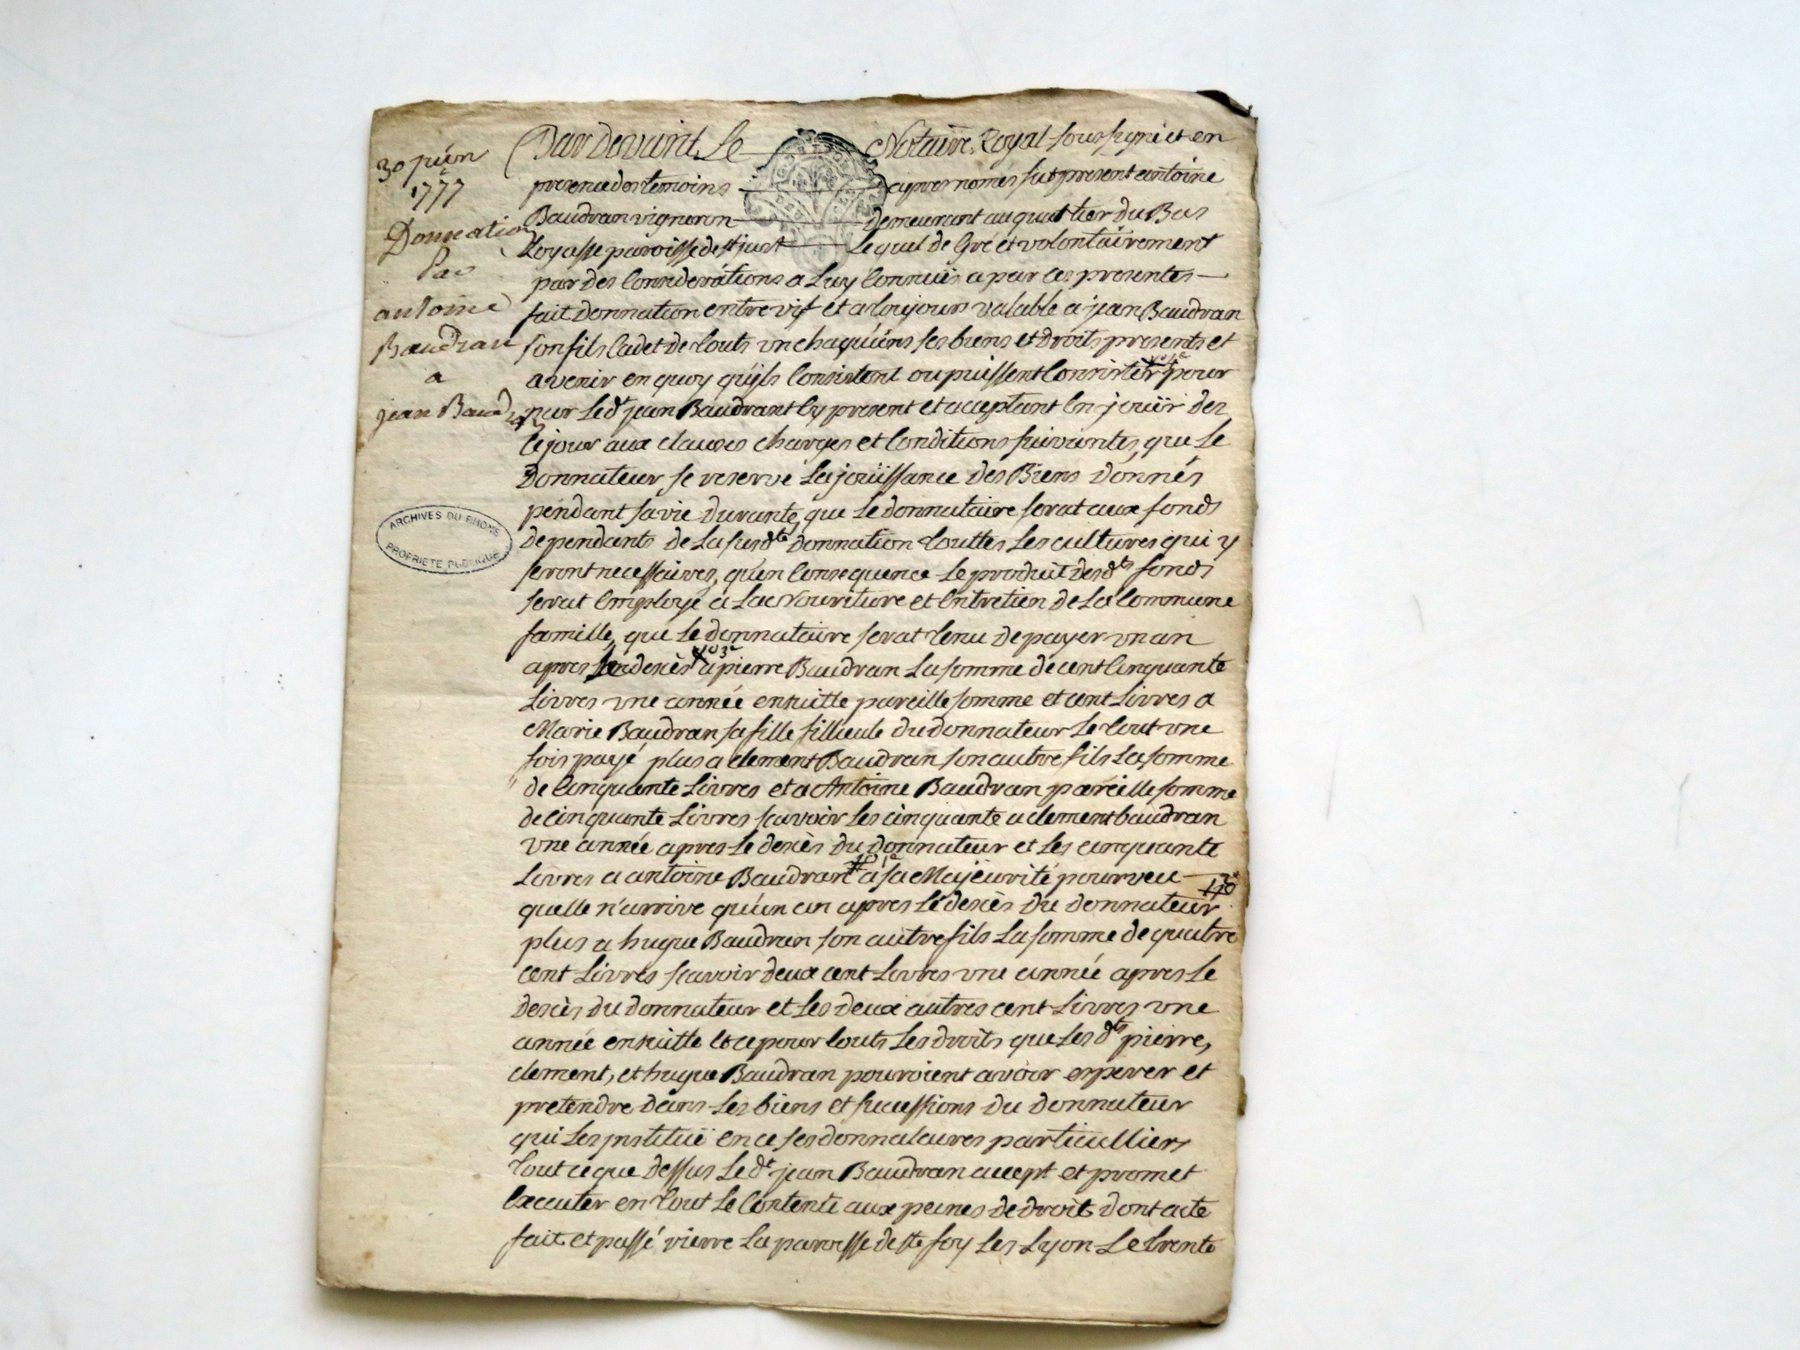 30 juin
1777
Donnation
Par
antoine
Baudran
a
jean Baudran
ARCHIVES DU RHONE
PROPRIETE PUBLIQUE
Par Devant Le Notaire Royal sous signé et en
presence des temoins apres només fut present antoine
Baudran vigneron demeurant au quartier du Bas
Loyasse paroisse de st just Lequel de Gré et volontairement
par des Considerations a Luy Connuës a par ces presentes
fait donnation entre vif et a toujours valable a jean Baudran
son fils Cadet de touts un chaquuns ses biens et droits presents et
avenir en quoy quils Consistent ou puissent Consister pour
par Led jean Baudran Icy present et acceptant En jouir des
Ce jour aux clauses charges et Conditions suivantes, que Le
Donnateur se reserve La joüissance des Biens donnés
pendant sa vie durante, que Le donnataire serat aux fonds
dependants de La susdte donnation touttes Les cultures qui y
seront necessaires, qu'en Consequence Le produit desdts fonds
serat Employé a La Nouriture et Entretien de La Commune
famille, que Le donnataire serat tenu de payer un an
apres decès a pierre Baudran La somme de cent Cinquante
Livres une année ensuitte pareille somme et cent Livres a
Marie Baudran sa fille fillieule du donnateur Le tout une
fois payé plus a clement Baudran son autre fils La somme
de Cinquante Livres et a Antoine Baudran pareille somme
de Cinquante Livres scavoir Les cinquante a clement baudran
une année apres Le decès du donnateur et Les cinquante
Livres a antoine Baudran a sa Majeurité pourveu
quelle n'arrive qu'un an apres Le decès du donnateur
plus a hugue Baudran son autre fils La somme de quatre
cent Livres scavoir deux cent Livres une année apres Le
decès du donnateur et Les deux autres cent Livres une
année ensuitte Et ce pour touts Les droits que Lesdts pierre,
clement, et hugue Baudran pouroient avoir esperer et
pretendre dans Les biens et successions du donnateur
qui Les jnstituë en ce ses donnataires particulliers
Tout ce que dessus Ledt jean Baudran accept et promet
Executer en tout Le Contenu aux peines de droit dont acte
fait et passé vierre La paroisse de ste foy Les Lyon Le trente